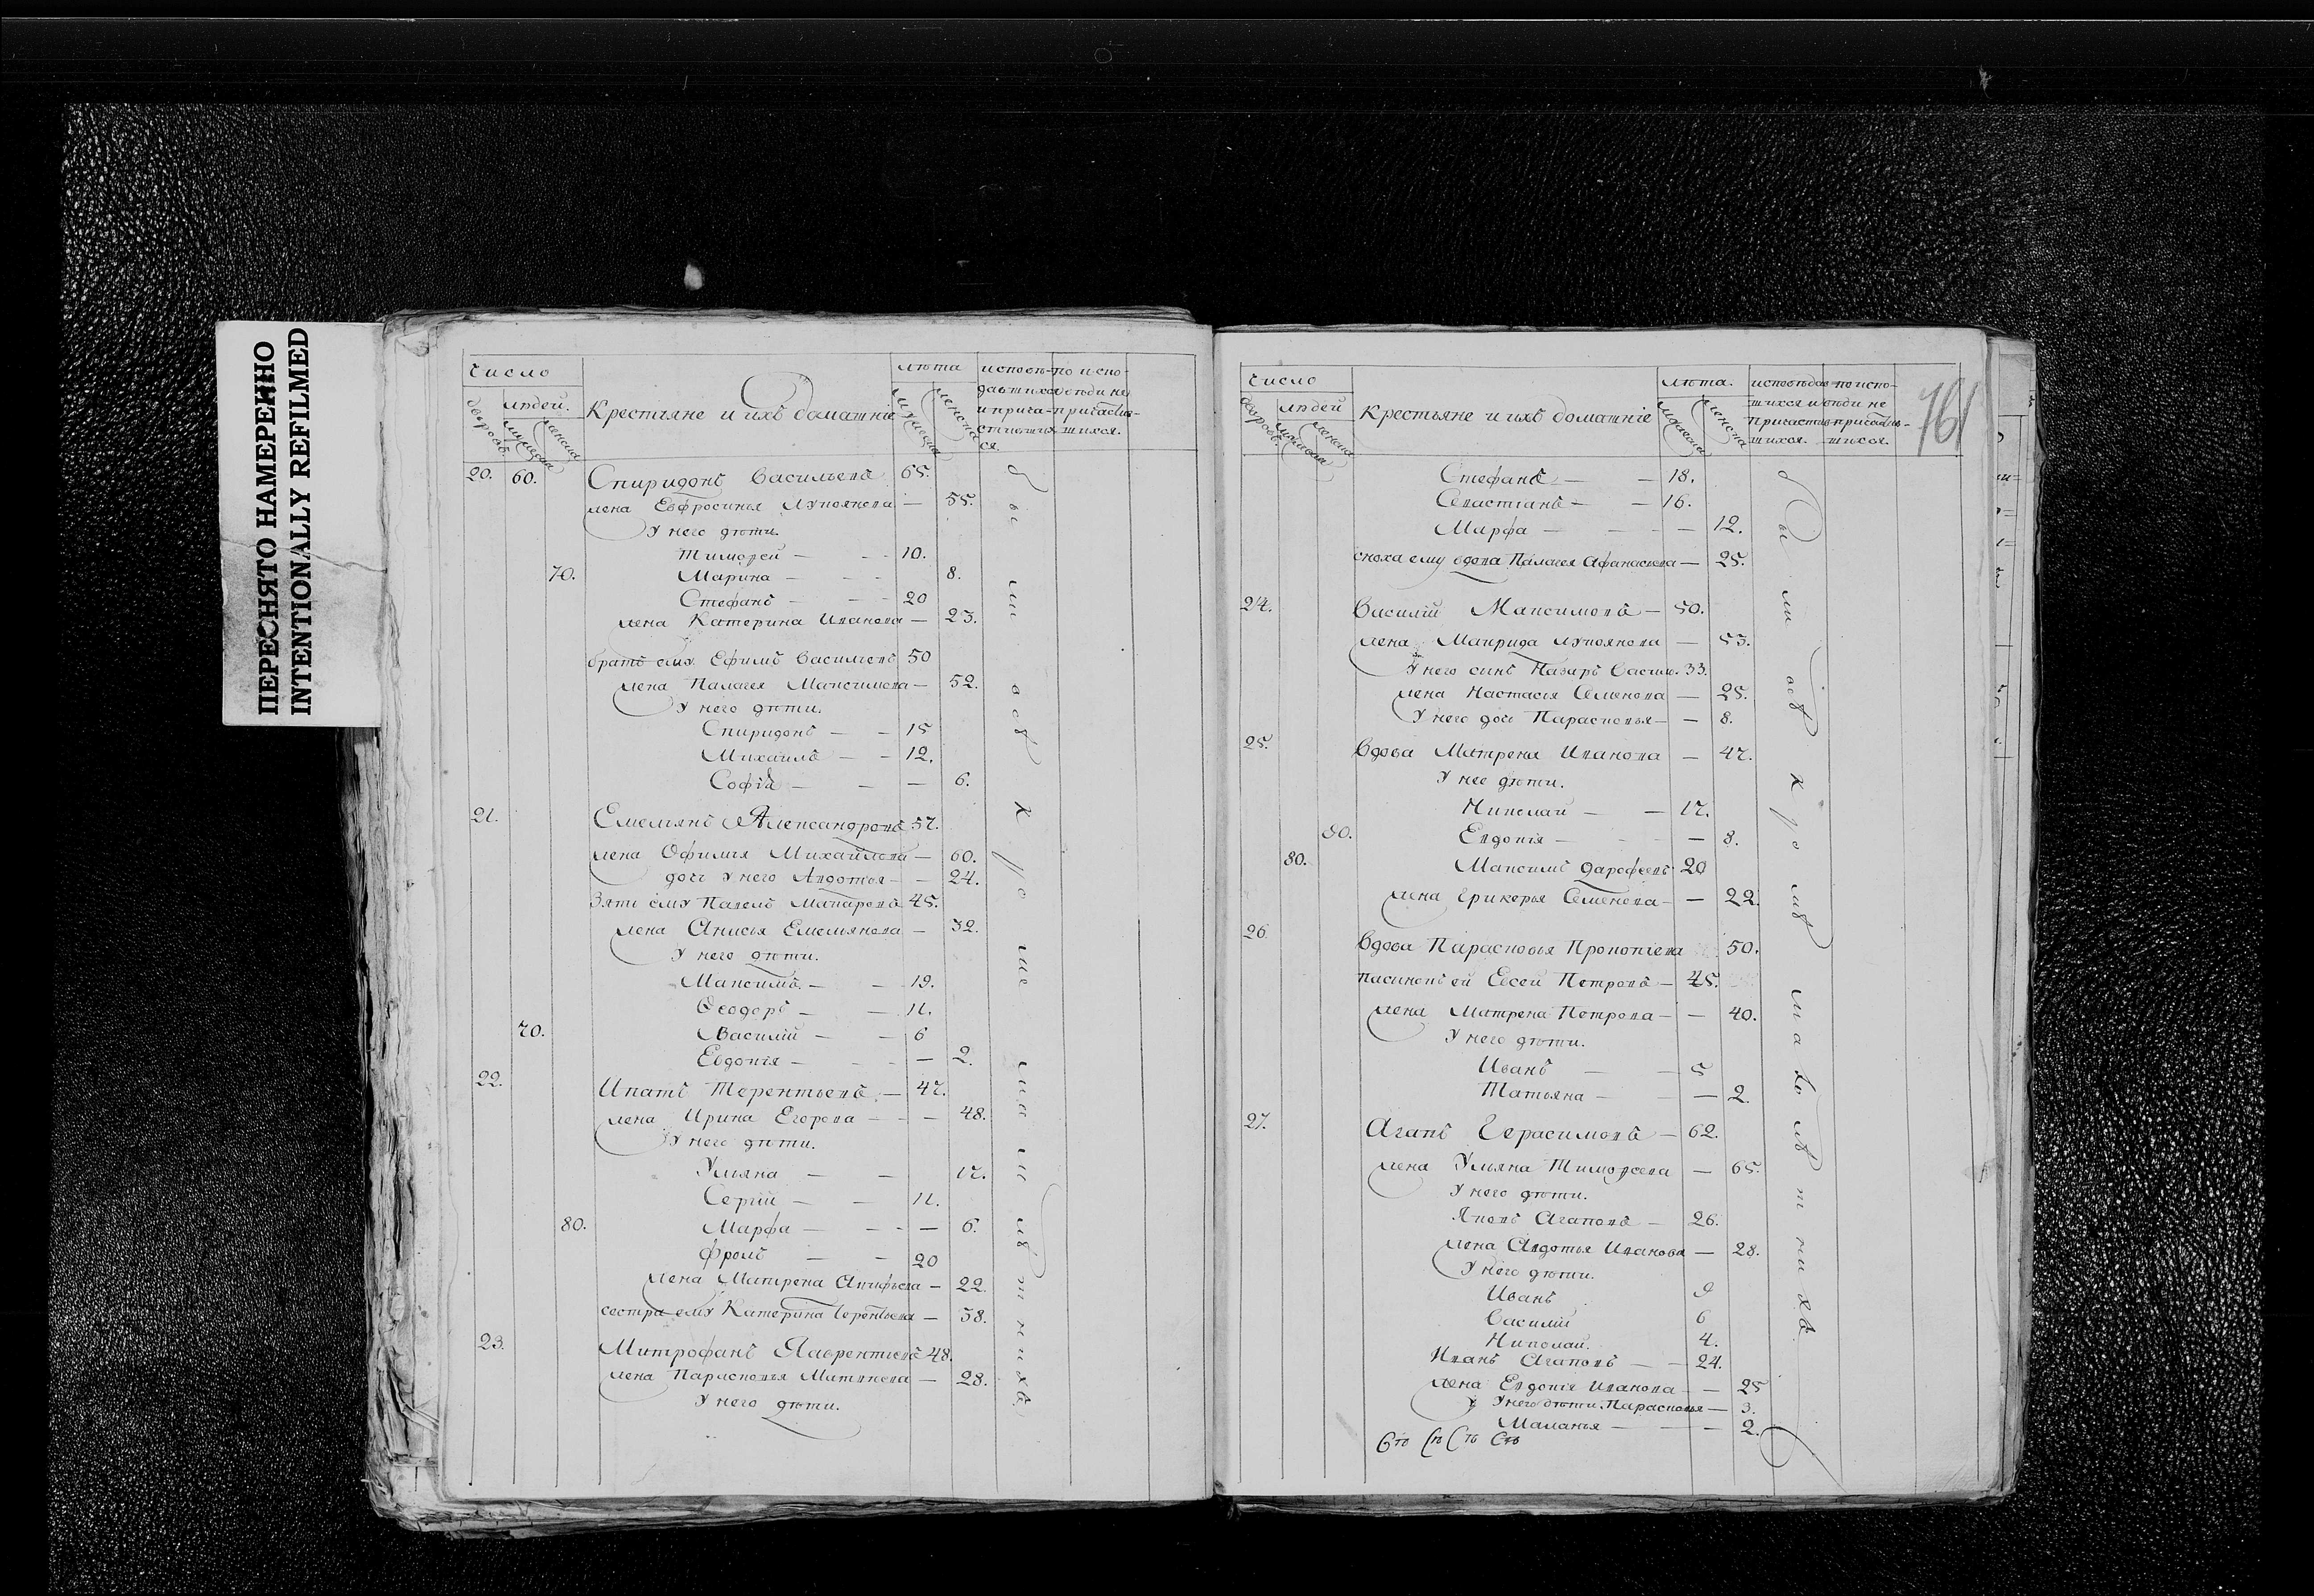 ПЕРЕСНЯТО НАМЕРЕННО
INTENTIONALLY REFILMED
число
дворовъ
людей.
мужеска
женска
Крестьяне и ихъ домашніе
лѣта
мужеска
женска
исповѣ-
давшихся
и прича-
стивших
ся.
по испо-
вѣди не
причастив-
шихся.
20. 60. Спиридонъ Васильевъ 65.
жена Евфросинья Лукоянова — 55.
У него дѣти.
Тимофей — — 10.
70. Марина — — 8.
Стефанъ — — 20
жена Катерина Иванова — 23.
братъ ему Ефимъ Васильевъ 50
жена Палагея Максимова — 52.
У него дѣти.
Спиридонъ — — 15
Михаилъ — — 12.
Софія — — 6.
21. Емельянъ Александровъ 57.
жена Офимья Михайлова — 60.
дочь у него Авдотья — — 24.
Зять ему Павелъ Макаровъ 45.
жена Анисья Емельянова — 32.
У него дѣти.
Максимъ — — 19.
Ѳеодоръ — — 11.
70. Василій — — 6
Евдокія — — 2.
22. Ипатъ Терентьевъ — 47.
жена Ирина Егорова — — 48.
У него дѣти.
Ульяна — — 17.
Сергій — — 11.
80. Марфа — — — 6.
Фролъ — — 20
жена Матрена Антифьева — 22.
сестра ему Катерина Терентьева — 38.
23. Митрофанъ Лаврентьевъ 48.
жена Парасковья Матвеева — 28.
У него дѣти.
были всѣ кромѣ малолѣтнихъ.
761
число
дворовъ.
людей
мужеска
женска
Крестьяне и ихъ домашніе
лѣта.
мужеска
женска
исповѣдав
шихся и
причастив
шихся.
по испо-
вѣди не
причастив-
шихся.
Стефанъ — — 18.
Севастіанъ — — 16.
Марфа — — — 12.
сноха ему вдова Палагея Афанасьева — 25.
24. Василій Максимовъ — 50.
жена Маврида Лукоянова — 53.
У него сынъ Назаръ Василь. 33.
жена Настасія Семенова — 25.
У него дочь Парасковья — — 8.
25. Вдова Матрена Иванова — 47.
У нее дѣти.
Николай — — 17.
90. Евдокія — — 8.
80. Максимъ Дарофеевъ 20
жена Гликерья Семенова — — 22.
26. Вдова Парасковья Прокопіева 50.
пасинокъ ей Евсей Петровъ — 45.
жена Матрена Петрова — — 40.
У него дѣти.
Иванъ — — 5
Татьяна — — 2.
27. Агапъ Герасимовъ — 62.
жена Ульяна Тимофеева — 65.
У него дѣти.
Яковъ Агаповъ — 26.
жена Авдотья Иванова — 28.
У него дѣти.
Иванъ 9
Василій 6
Николай. 4.
Иванъ Агаповъ — — 24.
жена Евдокія Иванова — — 25
У него дѣти. Парасковья — 3.
Маланья — — 2.
были всѣ кромѣ малолѣтнихъ.